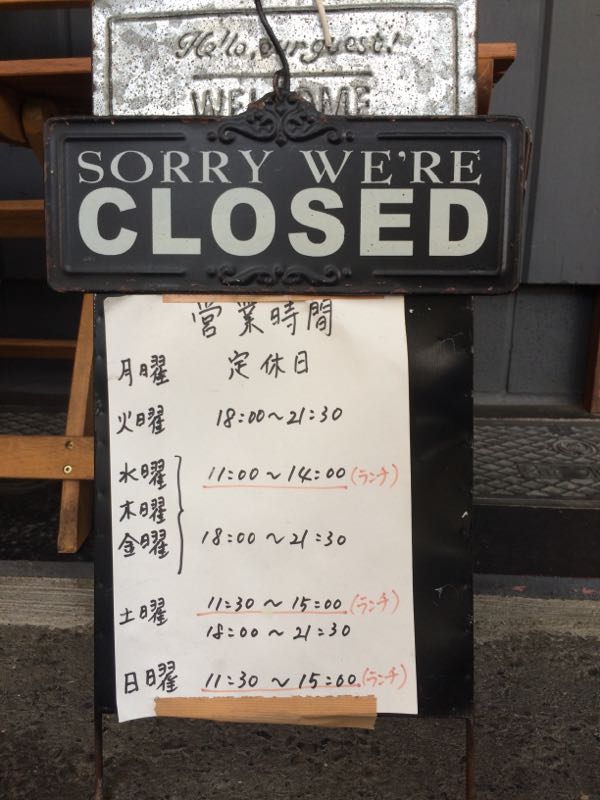 Hello, our guest!
WELCOME
SORRY WE'RE
CLOSED
営業時間
月曜 定休日
火曜 18:00〜21:30
水曜 11:00〜14:00(ランチ)
木曜
金曜 18:00〜21:30
土曜 11:30〜15:00(ランチ)
18:00〜21:30
日曜 11:30〜15:00(ランチ)